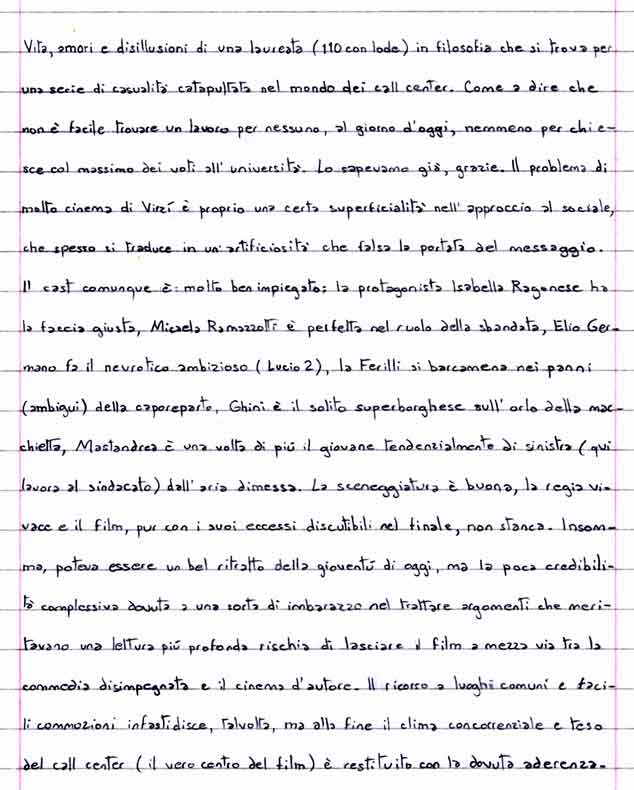 Vita, amori e disillusioni di una laureata (110 con lode) in filosofia che si trova per
una serie di casualità catapultata nel mondo dei call center. Come a dire che
non è facile trovare un lavoro per nessuno, al giorno d'oggi, nemmeno per chi e-
sce col massimo dei voti all'università. Lo sapevamo già, grazie. Il problema di
molto cinema di Virzí è proprio una certa superficialità nell'approccio al sociale,
che spesso si traduce in un'artificiosità che falsa la portata del messaggio.
Il cast comunque è molto ben impiegato: la protagonista Isabella Ragonese ha
la faccia giusta, Micaela Ramazzotti è perfetta nel ruolo della sbandata, Elio Ger-
mano fa il nevrotico ambizioso (Lucio 2), la Ferilli si barcamena nei panni
(ambigui) della caporeparto, Ghini è il solito superborghese sull'orlo della mac-
chietta, Mastandrea è una volta di piú il giovane tendenzialmente di sinistra (qui
lavora al sindacato) dall'aria dimessa. La sceneggiatura è buona, la regia vi-
vace e il film, pur con i suoi eccessi discutibili nel finale, non stanca. Insom-
ma, poteva essere un bel ritratto della gioventú di oggi, ma la poca credibili-
tà complessiva dovuta a una sorta di imbarazzo nel trattare argomenti che meri-
tavano una lettura piú profonda rischia di lasciare il film a mezza via tra la
commedia disimpegnata e il cinema d'autore. Il ricorso a luoghi comuni e faci-
li commozioni infastidisce, talvolta, ma alla fine il clima concorrenziale e teso
del call center (il vero centro del film) è restituito con la dovuta aderenza.